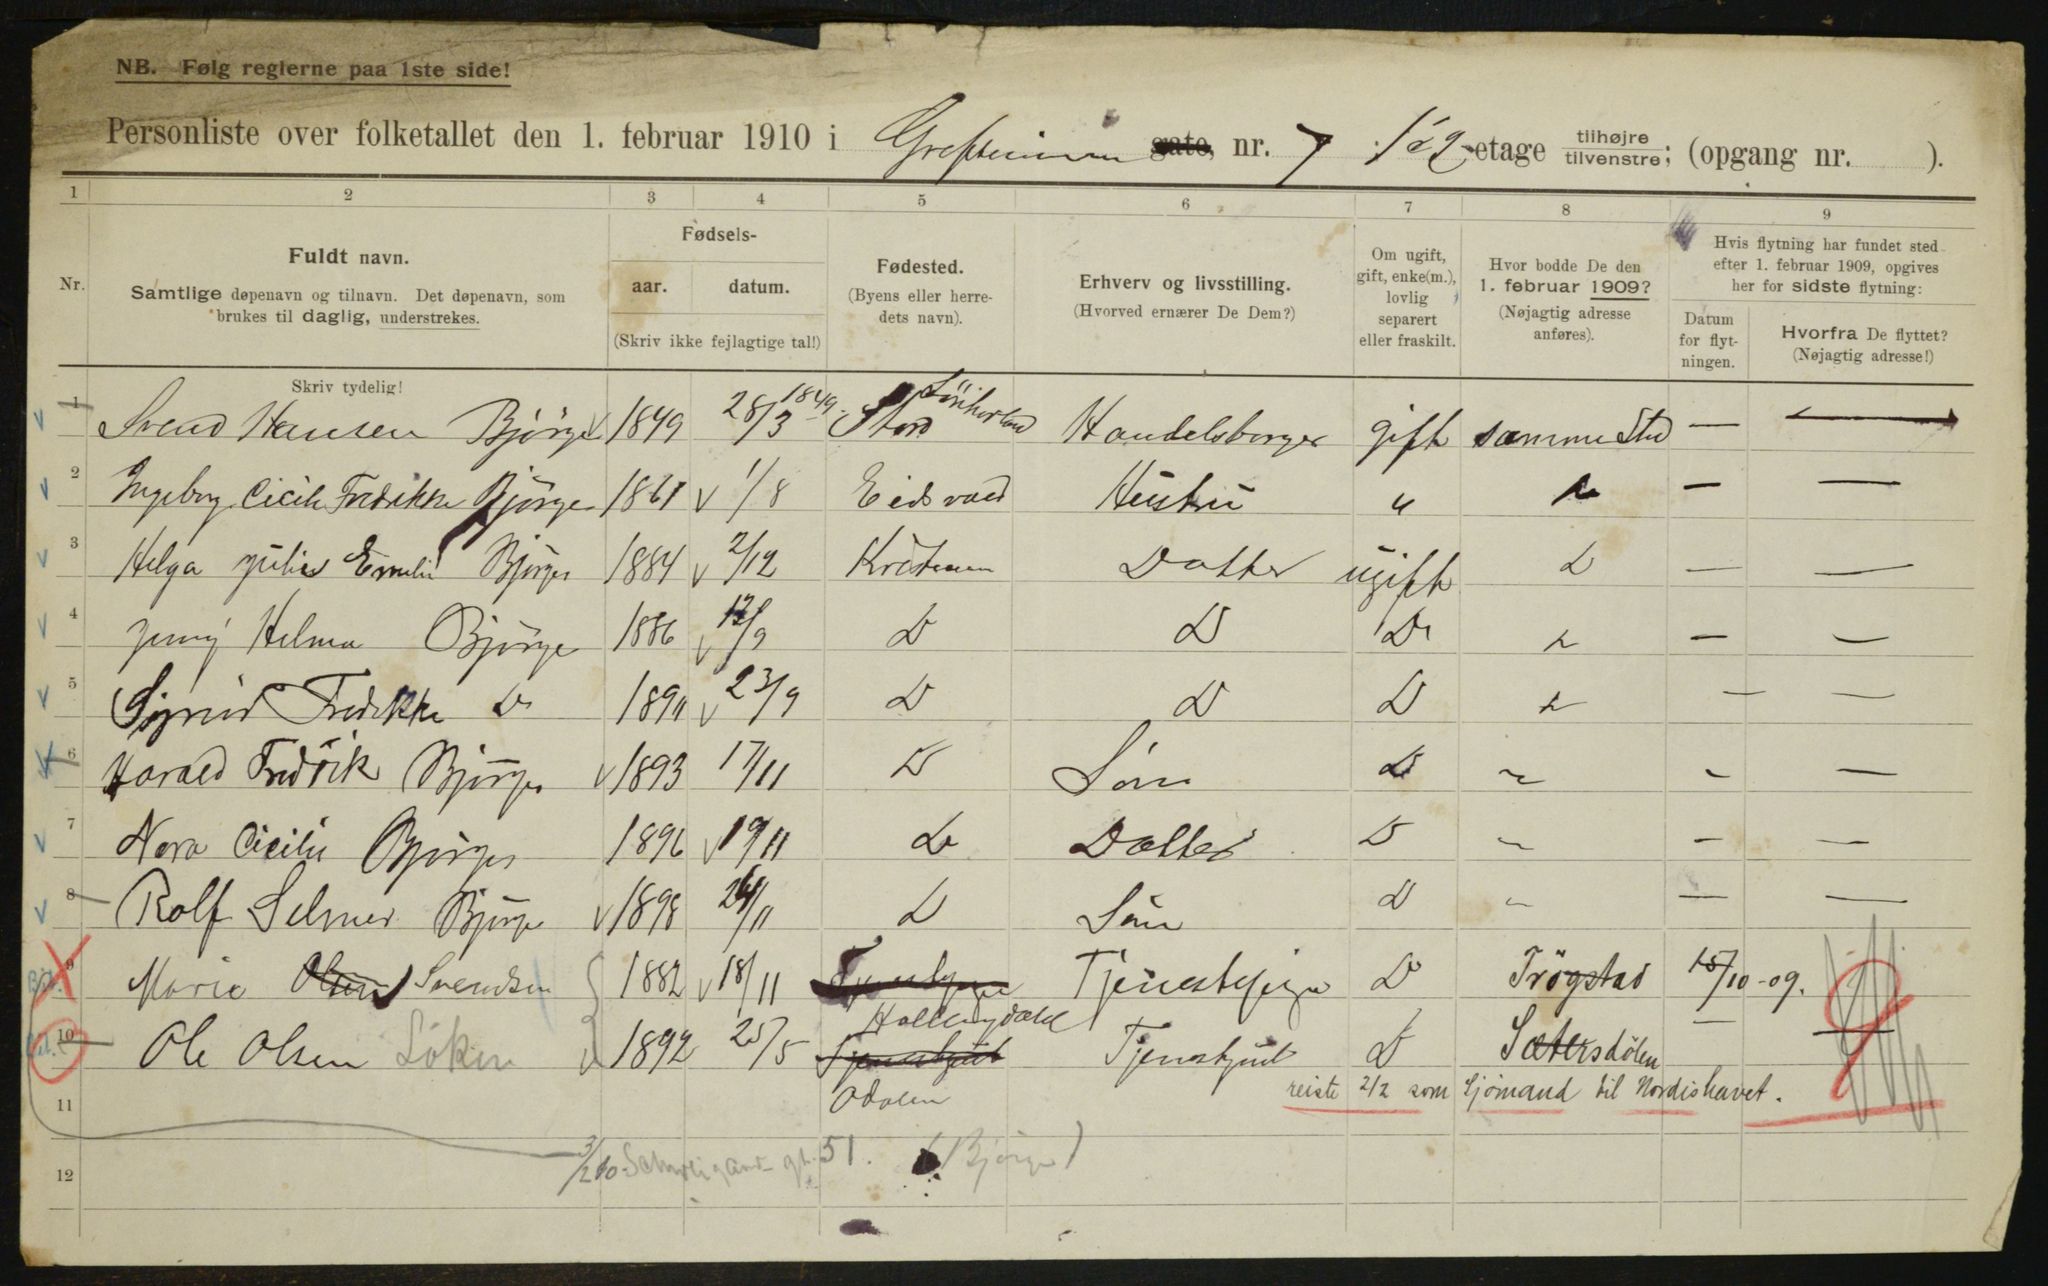 NB. Følg reglerne paa 1ste side!
Personliste over folketallet den 1. februar 1910 i Grefsenveien gate, nr. 7 1ste-etage tilhøjre/tilvenstre; (opgang nr. ).
1 2 3 4 5 6 7 8 9
Nr.
Fuldt navn.
Samtlige døpenavn og tilnavn. Det døpenavn, som
brukes til daglig, understrekes.
Skriv tydelig!
Fødsels-
aar. datum.
(Skriv ikke fejlagtige tal!)
Fødested.
(Byens eller herre-
dets navn).
Erhverv og livsstilling.
(Hvorved ernærer De Dem?)
Om ugift,
gift, enke(m.),
lovlig
separert
eller fraskilt.
Hvor bodde De den
1. februar 1909?
(Nøjagtig adresse
anføres).
Hvis flytning har fundet sted
efter 1. februar 1909, opgives
her for sidste flytning:
Datum
for flyt-
ningen.
Hvorfra De flyttet?
(Nøjagtig adresse!)
1 Svend Hansen Bjørge 1849 28/3 1849 Stord Sönhorland Handelsborger gift samme Sted — —
2 Ingeborg Cicilie Fredrikke Bjørge 1861 1/8 Eidsvold Hustru " " — —
3 Helga Julie Emelie Bjørge 1884 2/12 Kristiania Datter ugift D — —
4 Jenny Helma Bjørge 1886 12/9 D D Do " — —
5 Sigrid Fredrikke Do 1891 23/9 D D D " — —
6 Harald Fredrik Bjørge 1893 17/11 D Sön D " — —
7 Nora Cicilie Bjørge 1896 19/11 Do Datter D " — —
8 Rolf Selmer Bjørge 1898 24/11 D Sön D " — —
9 Marie Olsen Svendsen 1882 18/11 Tjenestepige Hallingdalel Tjenestepige Do Trögstad 15/10-09.
10 Ole Olsen Löken 1892 25/5 Tjenestgut Odalen Tjenestgut D Sætersdölen —
11 reiste 2/2 som Sjömand til Nordishavet.
12 3/2 10 Schweigaards gt. 51. (Bjørge)